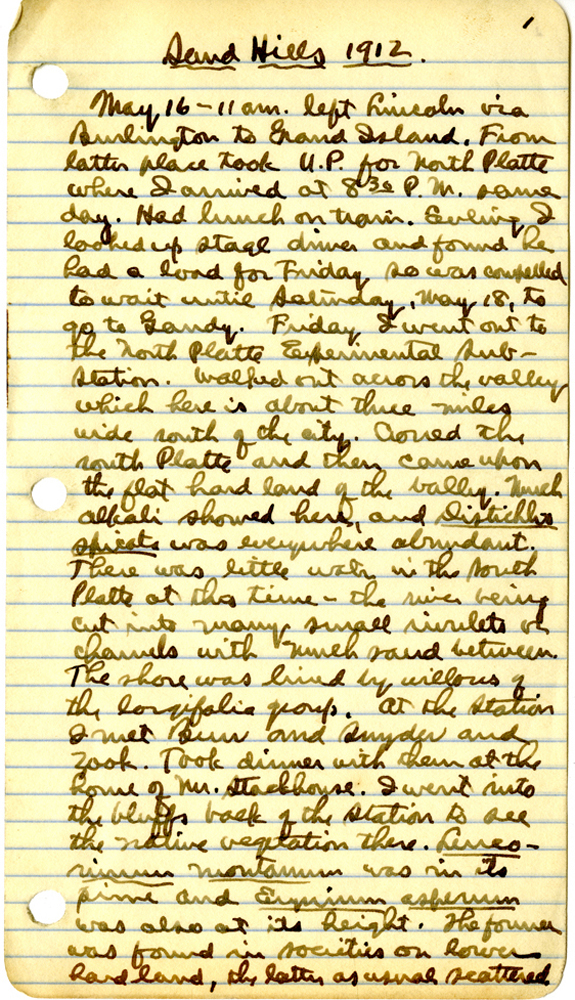 1
Sand Hills 1912.
May 16 - 11 am. left Lincoln via
Burlington to Grand Island. From
latter place took U.P. for North Platte
where I arrived at 8 30 P.M. same
day. Had lunch on train. Evening I
looked up stage driver and found he
had a load for Friday so was compelled
to wait until Saturday, May 18, to
go to Gandy. Friday I went out to
the North Platte Experimental Sub-
station. Walked out across the valley
which here is about three miles
wide south of the city. Crossed the
south Platte and then came upon
the flat hard land of the valley. Much
alkali showed here, and Distichlis
spicata was everywhere abundant.
There was little water in the South
Platte at this time - the river being
cut into many small rivulets or
channels with much sand between.
The shore was lined by willows of
the longifolia group. At the Station
I met Burr and Snyder and
Zook. Took dinner with them at the
home of Mr. Stockhouse. I went into
the bluffs back of the station to see
the native vegetation there. Leuco-
rinum montanum was in its
prime and Erysimum asperum
was also at its height. The former
was found in societies on lower
hard land, the latter as usual scattered